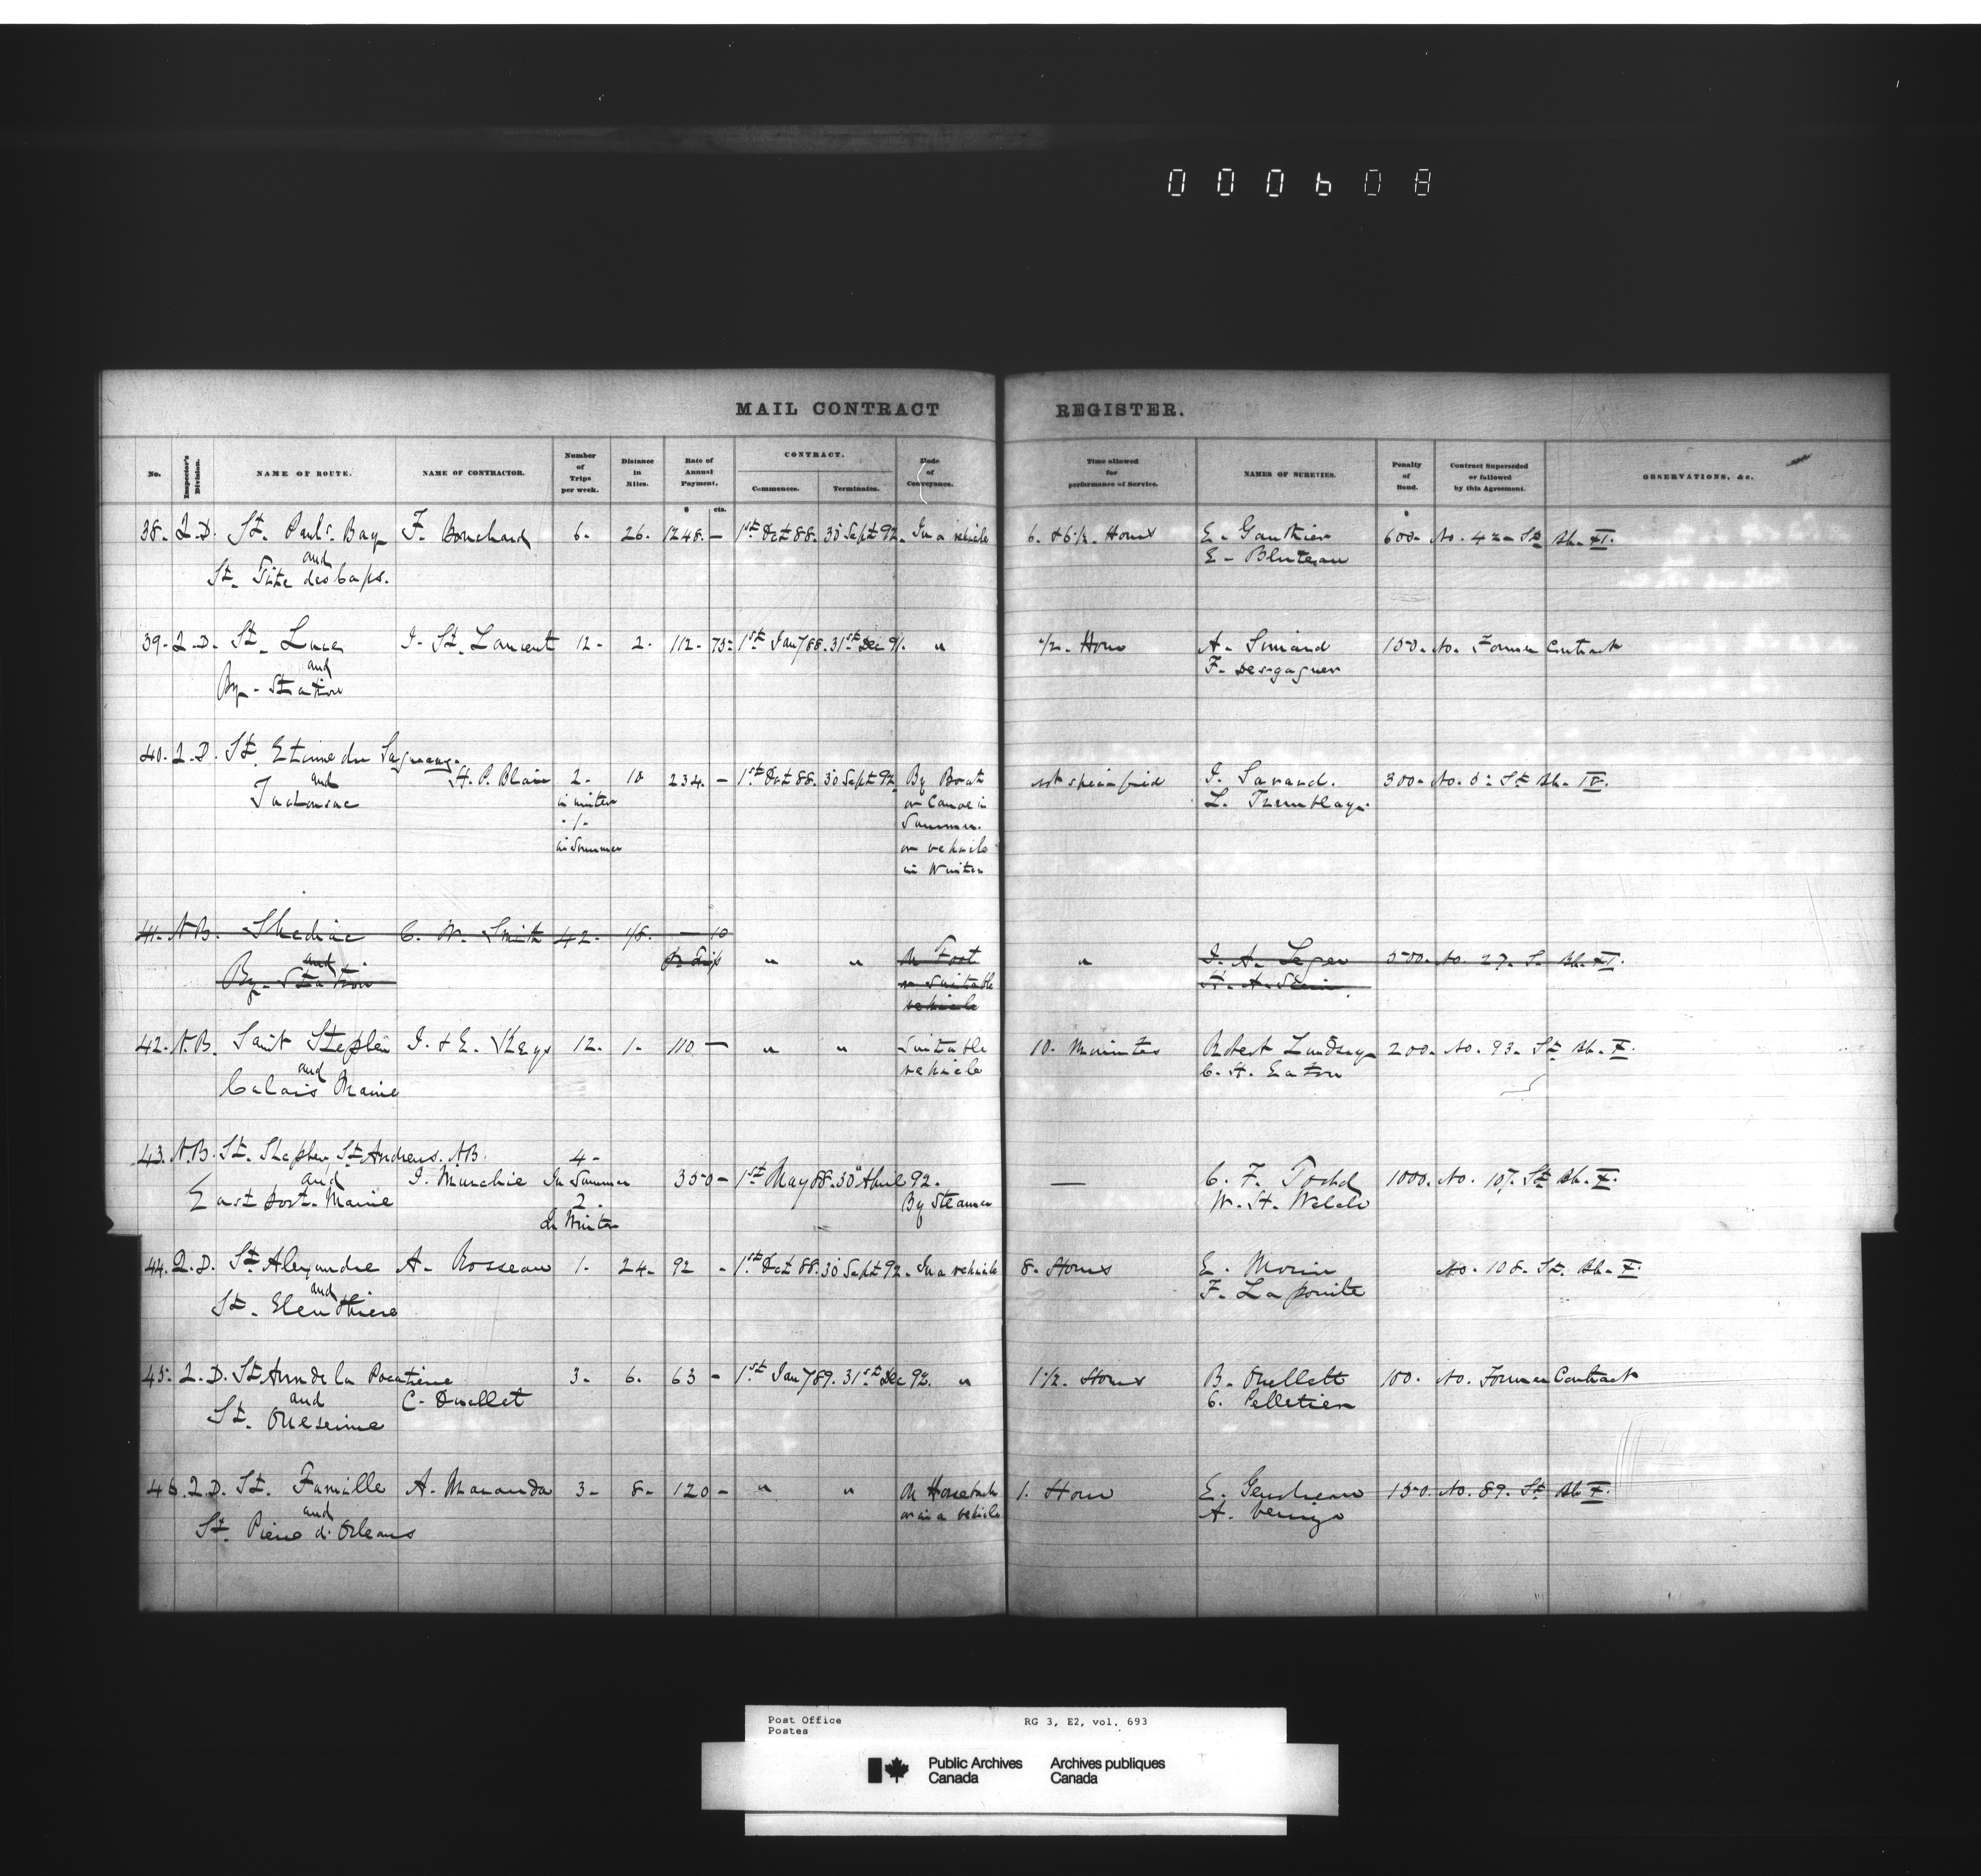 000608
MAIL CONTRACT REGISTER.
No. Inspector's Division. NAME OF ROUTE. NAME OF CONTRACTOR. Number of Trips per week. Distance in Miles. Rate of Annual Payment. CONTRACT. Commences. Terminates. Mode of Conveyance. Time allowed for performance of Service. NAMES OF SURETIES. Penalty of Bond. Contract Superseded or followed by this Agreement. OBSERVATIONS, &c.
$ cts. $
38. Q.D. St. Paul's Bay F. Bouchard 6. 26. 1248. — 1st Oct 88. 30 Sept 92. In a vehicle 6. & 6 1/2. Hours E. Gauthier 600. No. 42 St Bk. XI.
and E. Bluteau
St. Tite des Caps.
39. Q.D. St. Luce J. St. Laurent 12. 2. 112. 75. 1st Jany 88. 31st Dec 91. " 1/2. Hour A. Simard 150. No. Former Contract
and F. Desgagner
By. Station
40. Q.D. St. Etienne du Saguenay.
and H. P. Blair 2. 18 234. — 1st Oct 88. 30 Sept 92. By Boat not specified J. Savard. 300. No. 6. St Bk. IV.
Tadousac in winter or Canoe in L. Tremblay.
1. Summer.
in Summer or vehicle
in Winter
41. N.B. Shediac C. W. Smith 42. 1/8. — 10
and pr Trip " " On Foot " J. A. Leger 500. No. 27. S. Bk. XI.
By. Station or Suitable
vehicle
42. N.B. Saint Stephen J. & E. Keys 12. 1. 110 — " " Suitable 10. Minutes Robert Lindsay 200. No. 93. St Bk. X.
and vehicle C. H. Eaton
Calais Maine
43. N.B. St. Stephen, St Andrews. N.B. 4.
and J. Murchie In Summer 350 — 1st May 88. 30 April 92. — C. F. Todd 1000. No. 107. St Bk. X.
East port. Maine 2. By Steamer W. H. Welch
In Winter
44. Q.D. St Alexandre A. Rosseau 1. 24. 92 — 1st Oct 88. 30 Sept 92. In a vehicle 8. Hours E. Morin No. 108. St. Bk. X.
and F. Lapointe
St. Eleuthiere
45. Q.D. St Ann de la Pocatiere 3. 6. 63 — 1st Jany 89. 31st Dec 92. " 1 1/2. Hours B. Ouellett 100. No. Former Contract
and C. Ouellet C. Pelletier
St. Onesime
46. Q.D. St. Famille A. Maranda 3. 8. 120 — " " On Horseback 1. Hour E. Gendreau 150. No. 89. St Bk X.
and or in a vehicle
St. Pierre d'Orleans
Post Office RG 3, E2, vol. 693
Postes
Public Archives Archives publiques
Canada Canada